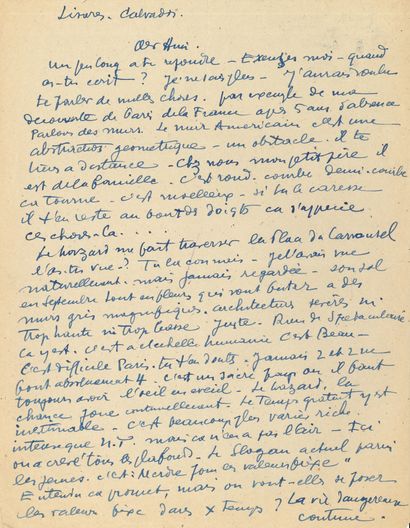 Lisores. Calvados.
Cher Ami.
Un peu long a te repondre - Excusez moi - quand
as-tu ecrit ? Je ne sais plus - J'aurais voulu
te parler de milles choses. par exemple de ma
decouverte de Paris de la France après 5 ans d'absence
Parlons des murs. Le mur Americain c'est une
abstraction geometrique - un obstacle. il te
tiens a distance - Chez nous mon petit père il
est de la famille. C'est rond. courbe demi-courbe
ca tourne - c'est moelleux - si tu le caresse
il t'en reste au bout des doigts ca s'apprecie
ces choses-la....
Le hazard me fait traverser la Place du Carrousel
l'as-tu vue ? Tu la connais - je l'avais vue
naturellement. mais jamais regardée - son sol
en septembre tout en fleurs qui vont buter a des
murs gris magnifiques. architecture severes ni
trop haute ni trop basse juste. Rien de Spectaculaire
ca y est. c'est a l'echelle humaine c'est Beau -
C'est difficile Paris. tu t'en doutes - jamais 2 et 2 ne
font absolument 4. c'est un sacré pays ou il faut
toujours avoir l'oeil en eveil - Le hazard, la
chance joue continuellement. le temps gratuit y est
inestimable - c'est beaucoup plus varié riche
intense que N.Y. mais ca n'en a pas l'air - Ici
on a crevé tous les plafonds. Le Slogan actuel parmi
les jeunes. c'est : Merdre pour les valeurs fixe"
Entendu ca promet, mais ou vont-elles se poser
les valeurs fixe dans x temps ? La vie dangereuse
continue.